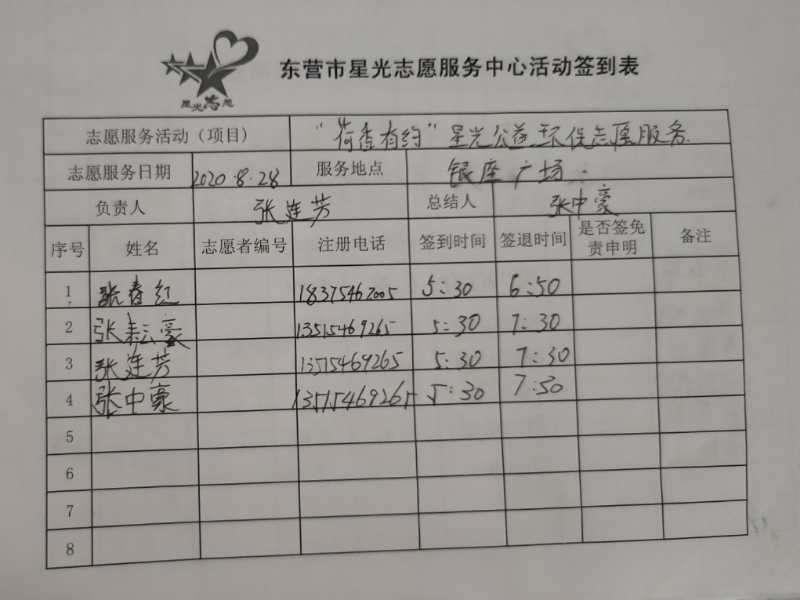 星光志愿
东营市星光志愿服务中心活动签到表
志愿服务活动（项目） “荷香有约”星光公益环保志愿服务
志愿服务日期 2020.8.28 服务地点 银座广场.
负责人 张连芳 总结人 张中豪
序号 姓名 志愿者编号 注册电话 签到时间 签退时间 是否签免责申明 备注
1 张春红 18375467005 5:30 6:50
2 张耘豪 13515469265 5:30 7:30
3 张连芳 13515469265 5:30 7:30
4 张中豪 13515469265 5:30 7:30
5
6
7
8